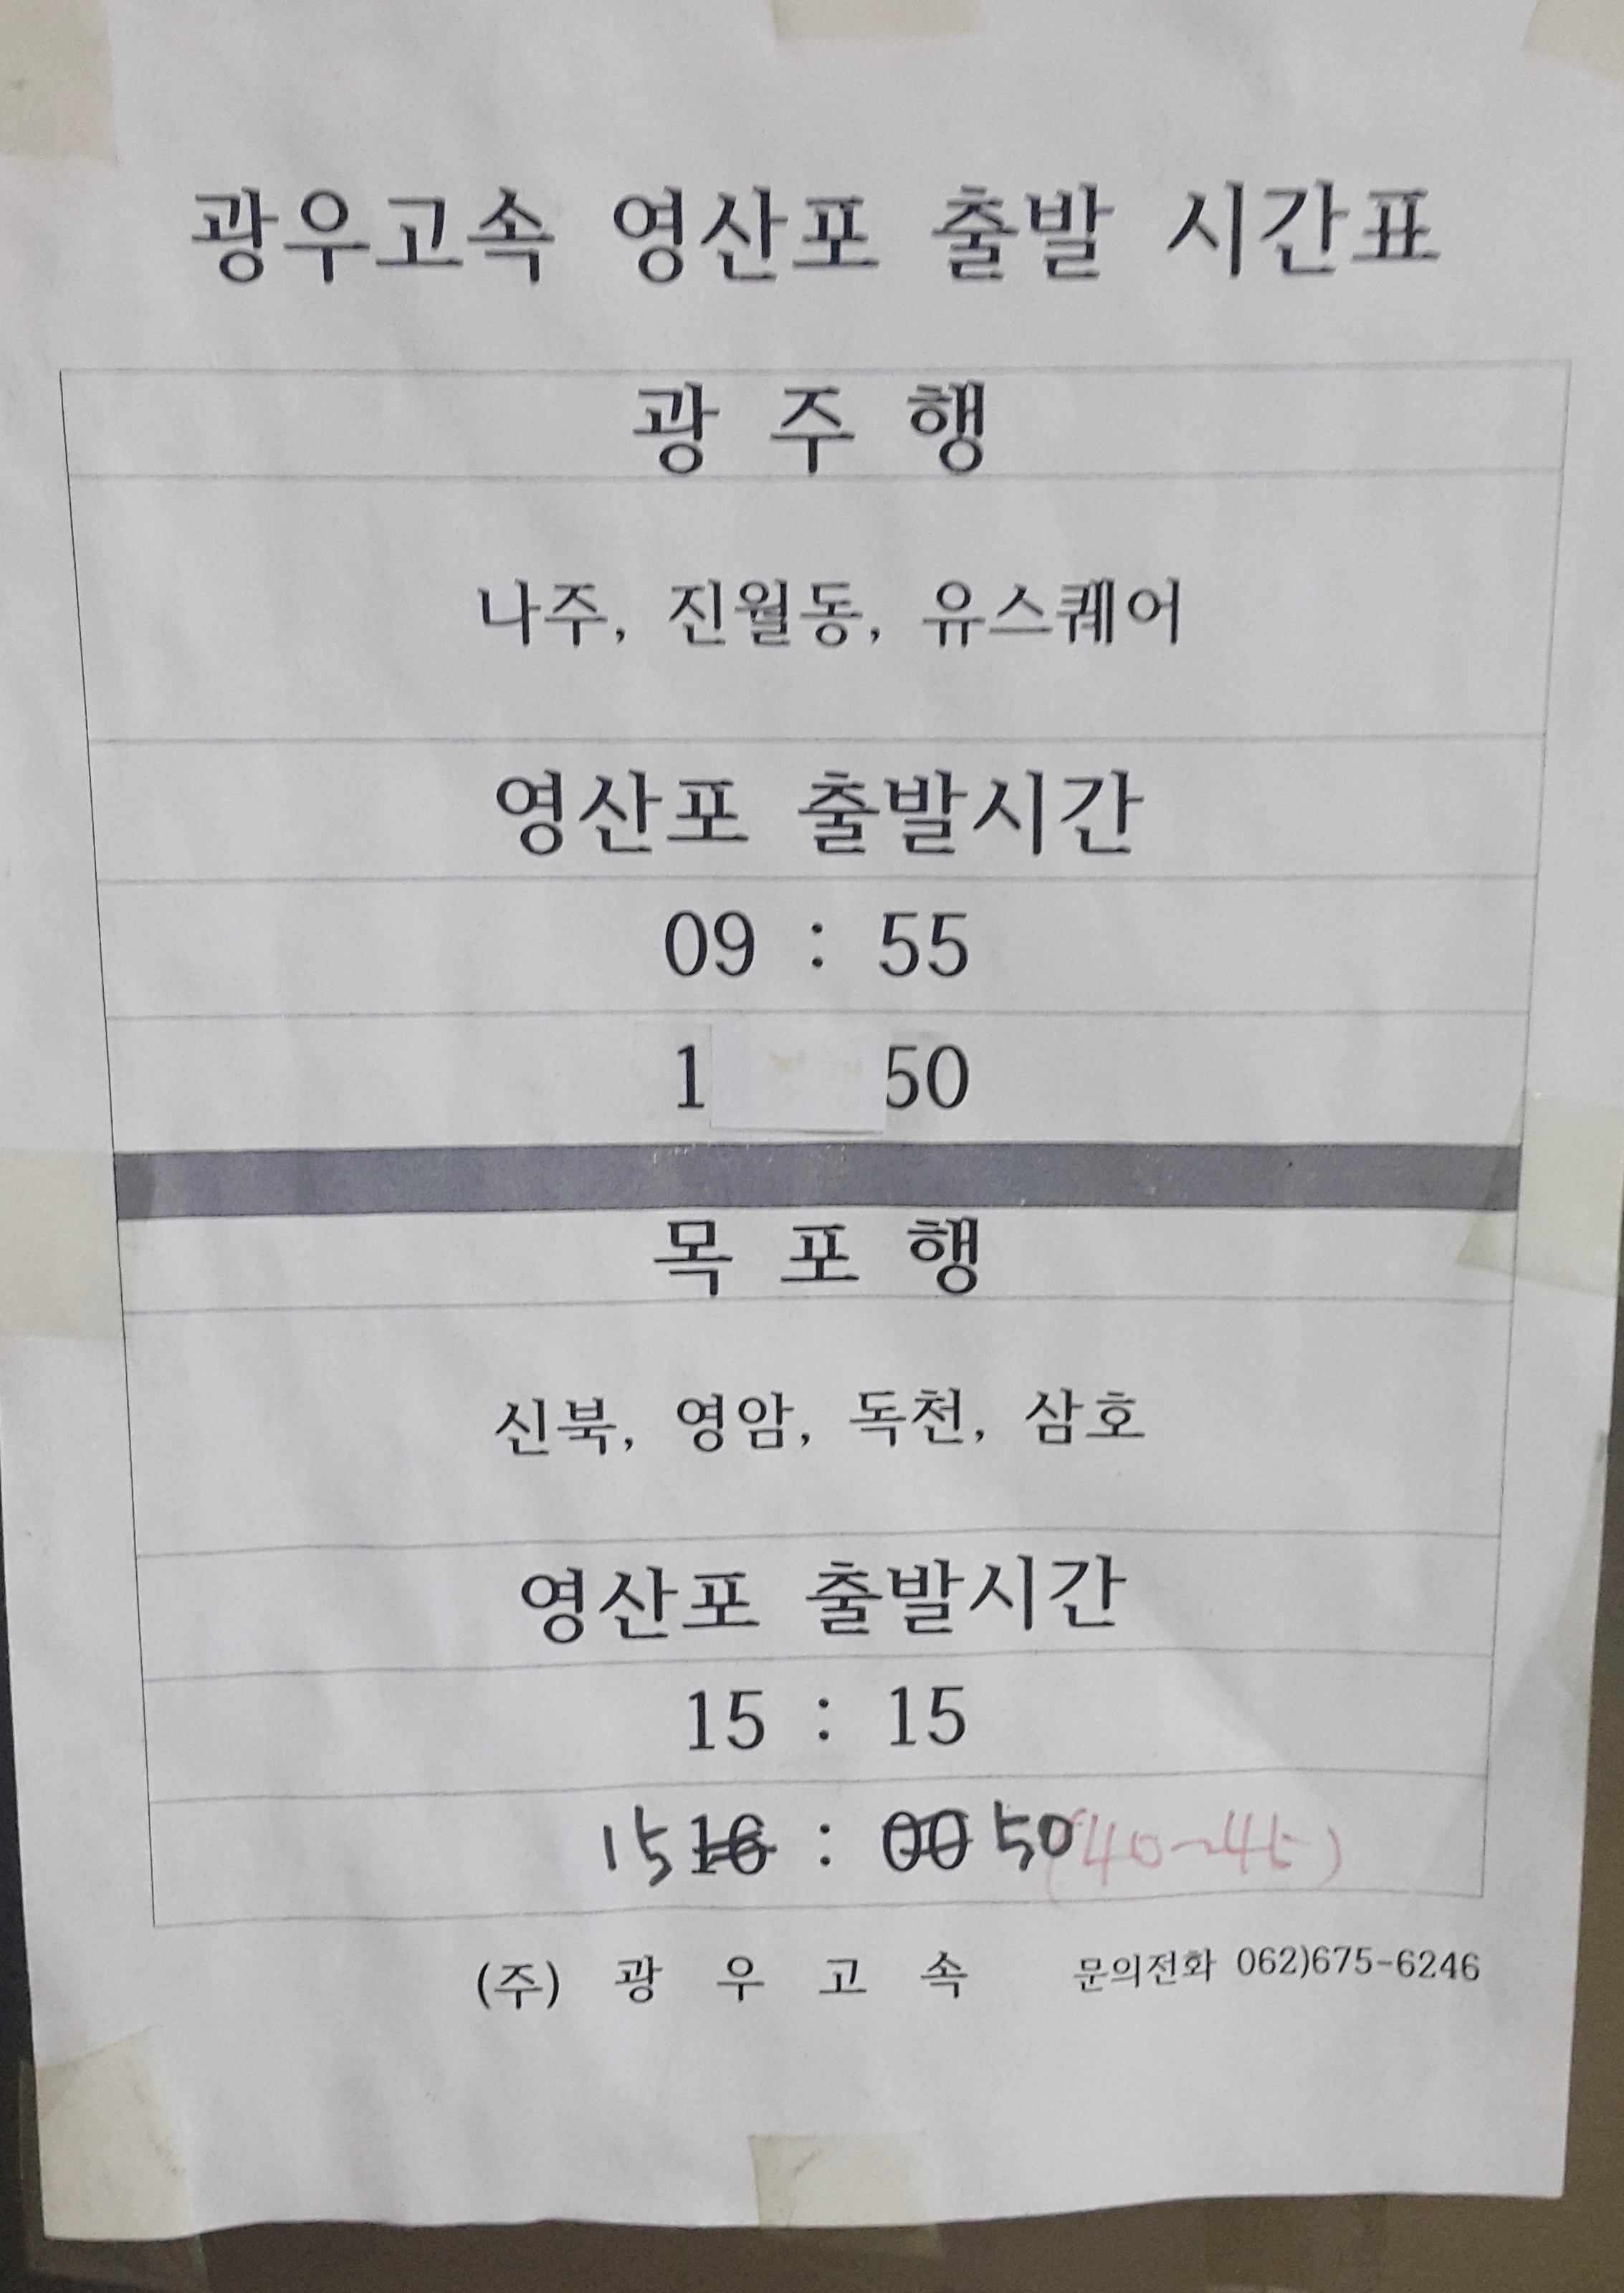 광우고속 영산포 출발 시간표
광 주 행
나주, 진월동, 유스퀘어
영산포 출발시간
09 : 55
1 50
목 포 행
신북, 영암, 독천, 삼호
영산포 출발시간
15 : 15
15 16 : 00 50 (40~45)
(주) 광 우 고 속 문의전화 062)675-6246